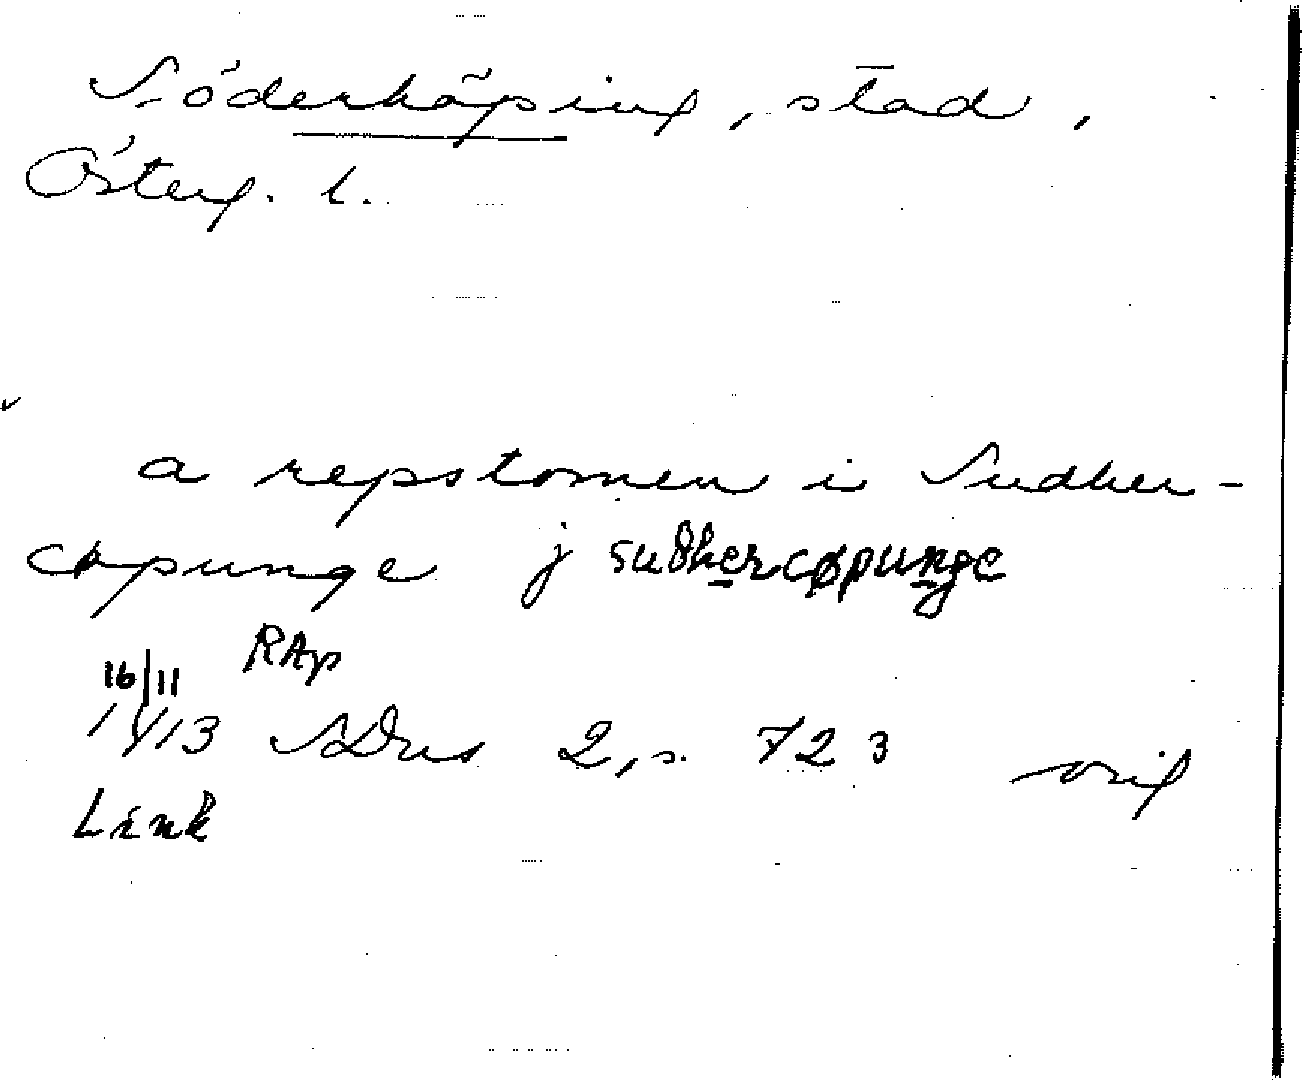 Söderköping, stad,
Österg. l.
a repstomen i Sudher-
cøpunge j suðhercøpunge
16/11 RAp
1413 SDns 2, s. 723 orig
Link